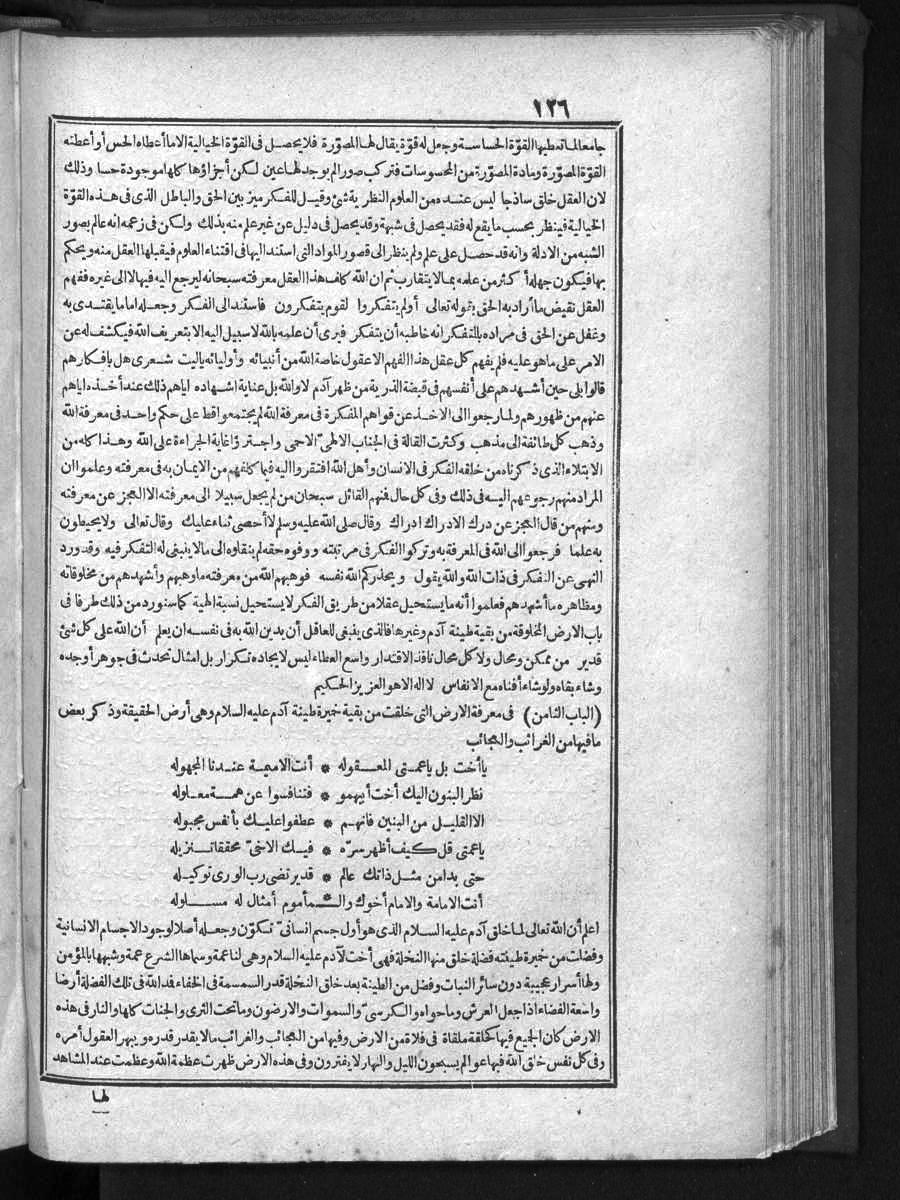 ١٢٦
جامعا لما تعطيها القوّة الحساسة وجعل له قوّة يقال لها المصوّرة فلا يحصل فى القوّة الخيالية الا ما أعطاه الحس أو أعطته
القوّة المصوّرة ومادة المصوّرة من المحسوسات فتركب صورا لم يوجد لها عين لكن أجزاؤها كلها موجودة حسا وذلك
لان العقل خلق ساذجا ليس عنده من العلوم النظرية شئ وقيل للفكر ميز بين الحق والباطل الذى فى هذه القوّة
الخيالية فينظر بحسب ما يقع له فقد يحصل فى شبهة وقد يحصل فى دليل عن غير علم منه بذلك ولكن فى زعمه انه عالم بصور
الشبه من الادلة وانه قد حصل على علم ولم ينظر الى قصور المواد التى استند اليها فى اقتناء العلوم فيقبلها العقل منه ويحكم
بها فيكون جهله أكثر من علمه بما لا يتقارب ثم ان الله كلف هذا العقل معرفته سبحانه ليرجع اليه فيها لا الى غيره ففهم
العقل نقيض ما أراد به الحق بقوله تعالى أولم يتفكروا لقوم يتفكرون فاستند الى الفكر وجعله اماما يقتدى به
وغفل عن الحق فى مراده بالتفكر انه خاطبه أن يتفكر فيرى أن علمه بالله لا سبيل اليه الا بتعريف الله فيكشف له عن
الامر على ما هو عليه فلم يفهم كل عقل هذا الفهم الا عقول خاصة الله من أنبيائه وأوليائه ياليت شعرى هل بافكارهم
قالوا بلى حين أشهدهم على أنفسهم فى قبضة الذرية من ظهر آدم لا والله بل عناية اشهاده اياهم ذلك عند أخذه اياهم
عنهم من ظهورهم ولما رجعوا الى الاخذ عن قواهم المفكرة فى معرفة الله لم يجتمعوا قط على حكم واحد فى معرفة الله
وذهب كل طائفة الى مذهب وكثرت القالة فى الجناب الالهىّ الاحمى واجترؤا غاية الجراءة على الله وهذا كله من
الابتلاء الذى ذكرناه من خلقه الفكر فى الانسان وأهل الله افتقروا اليه فيما كلفهم من الايمان به فى معرفته وعلموا ان
المراد منهم رجوعهم اليه فى ذلك وفى كل حال فمنهم القائل سبحان من لم يجعل سبيلا الى معرفته الا العجز عن معرفته
ومنهم من قال العجز عن درك الادراك ادراك وقال صلى الله عليه وسلم لا أحصى ثناء عليك وقال تعالى ولا يحيطون
به علما فرجعوا الى الله فى المعرفة به وتركوا الفكر فى مرتبته ووفوه حقه لم ينقلوه الى ما لا ينبغى له التفكر فيه وقد ورد
النهى عن التفكر فى ذات الله والله يقول ويحذركم الله نفسه فوهبهم الله من معرفته ما وهبهم وأشهدهم من مخلوقاته
ومظاهره ما أشهدهم فعلموا أنه ما يستحيل عقلا من طريق الفكر لا يستحيل نسبة الهية كما سنورد من ذلك طرفا فى
باب الارض المخلوقة من بقية طينة آدم وغيرها فالذى ينبغى للعاقل أن يدين الله به فى نفسه ان يعلم أن الله على كل شئ
قدير من ممكن ومحال ولا كل محال نافذ الاقتدار واسع العطاء ليس لايجاده تكرار بل امثال تحدث فى جوهر أوجده
وشاء بقاه ولو شاء أفناه مع الانفاس لا اله الا هو العزيز الحكيم
(الباب الثامن) فى معرفة الارض التى خلقت من بقية خميرة طينة آدم عليه السلام وهى أرض الحقيقة وذكر بعض
ما فيها من الغرائب والعجائب
يا أخت بل يا عمتى المعقوله * أنت الاميمة عندنا المجهوله
نظر البنون اليك أخت أبيهمو * فتنافسوا عن همة معلوله
الا القليل من البنين فانهم * عطفوا عليك بأنفس مجبوله
يا عمتى قل كيف أظهر سرّه * فيك الاخىّ محققا تنزيله
حتى بدا من مثل ذاتك عالم * قد يرتضى رب الورى توكيله
أنت الامامة والامام أخوك والـ * ـمأموم أمثال له مسلوله
اعلم أن الله تعالى لما خلق آدم عليه السلام الذى هو أول جسم انسانىّ تكوّن وجعله أصلا لوجود الاجسام الانسانية
وفضلت من خميرة طينته فضلة خلق منها النخلة فهى أخت لآدم عليه السلام وهى لنا عمة وسماها الشرع عمة وشبهها بالمؤمن
ولها أسرار عجيبة دون سائر النبات وفضل من الطينة بعد خلق النخلة قدر السمسمة فى الخفاء فمد الله فى تلك الفضلة أرضا
واسعة الفضاء اذا جعل العرش وما حواه والكرسىّ والسموات والارضون وما تحت الثرى والجنات كلها والنار فى هذه
الارض كان الجميع فيها كحلقة ملقاة فى فلاة من الارض وفيها من العجائب والغرائب ما لا يقدر قدره ويبهر العقول أمره
وفى كل نفس خلق الله فيها عوالم يسبحون الليل والنهار لا يفترون وفى هذه الارض ظهرت عظمة الله وعظمت عند المشاهد
لها